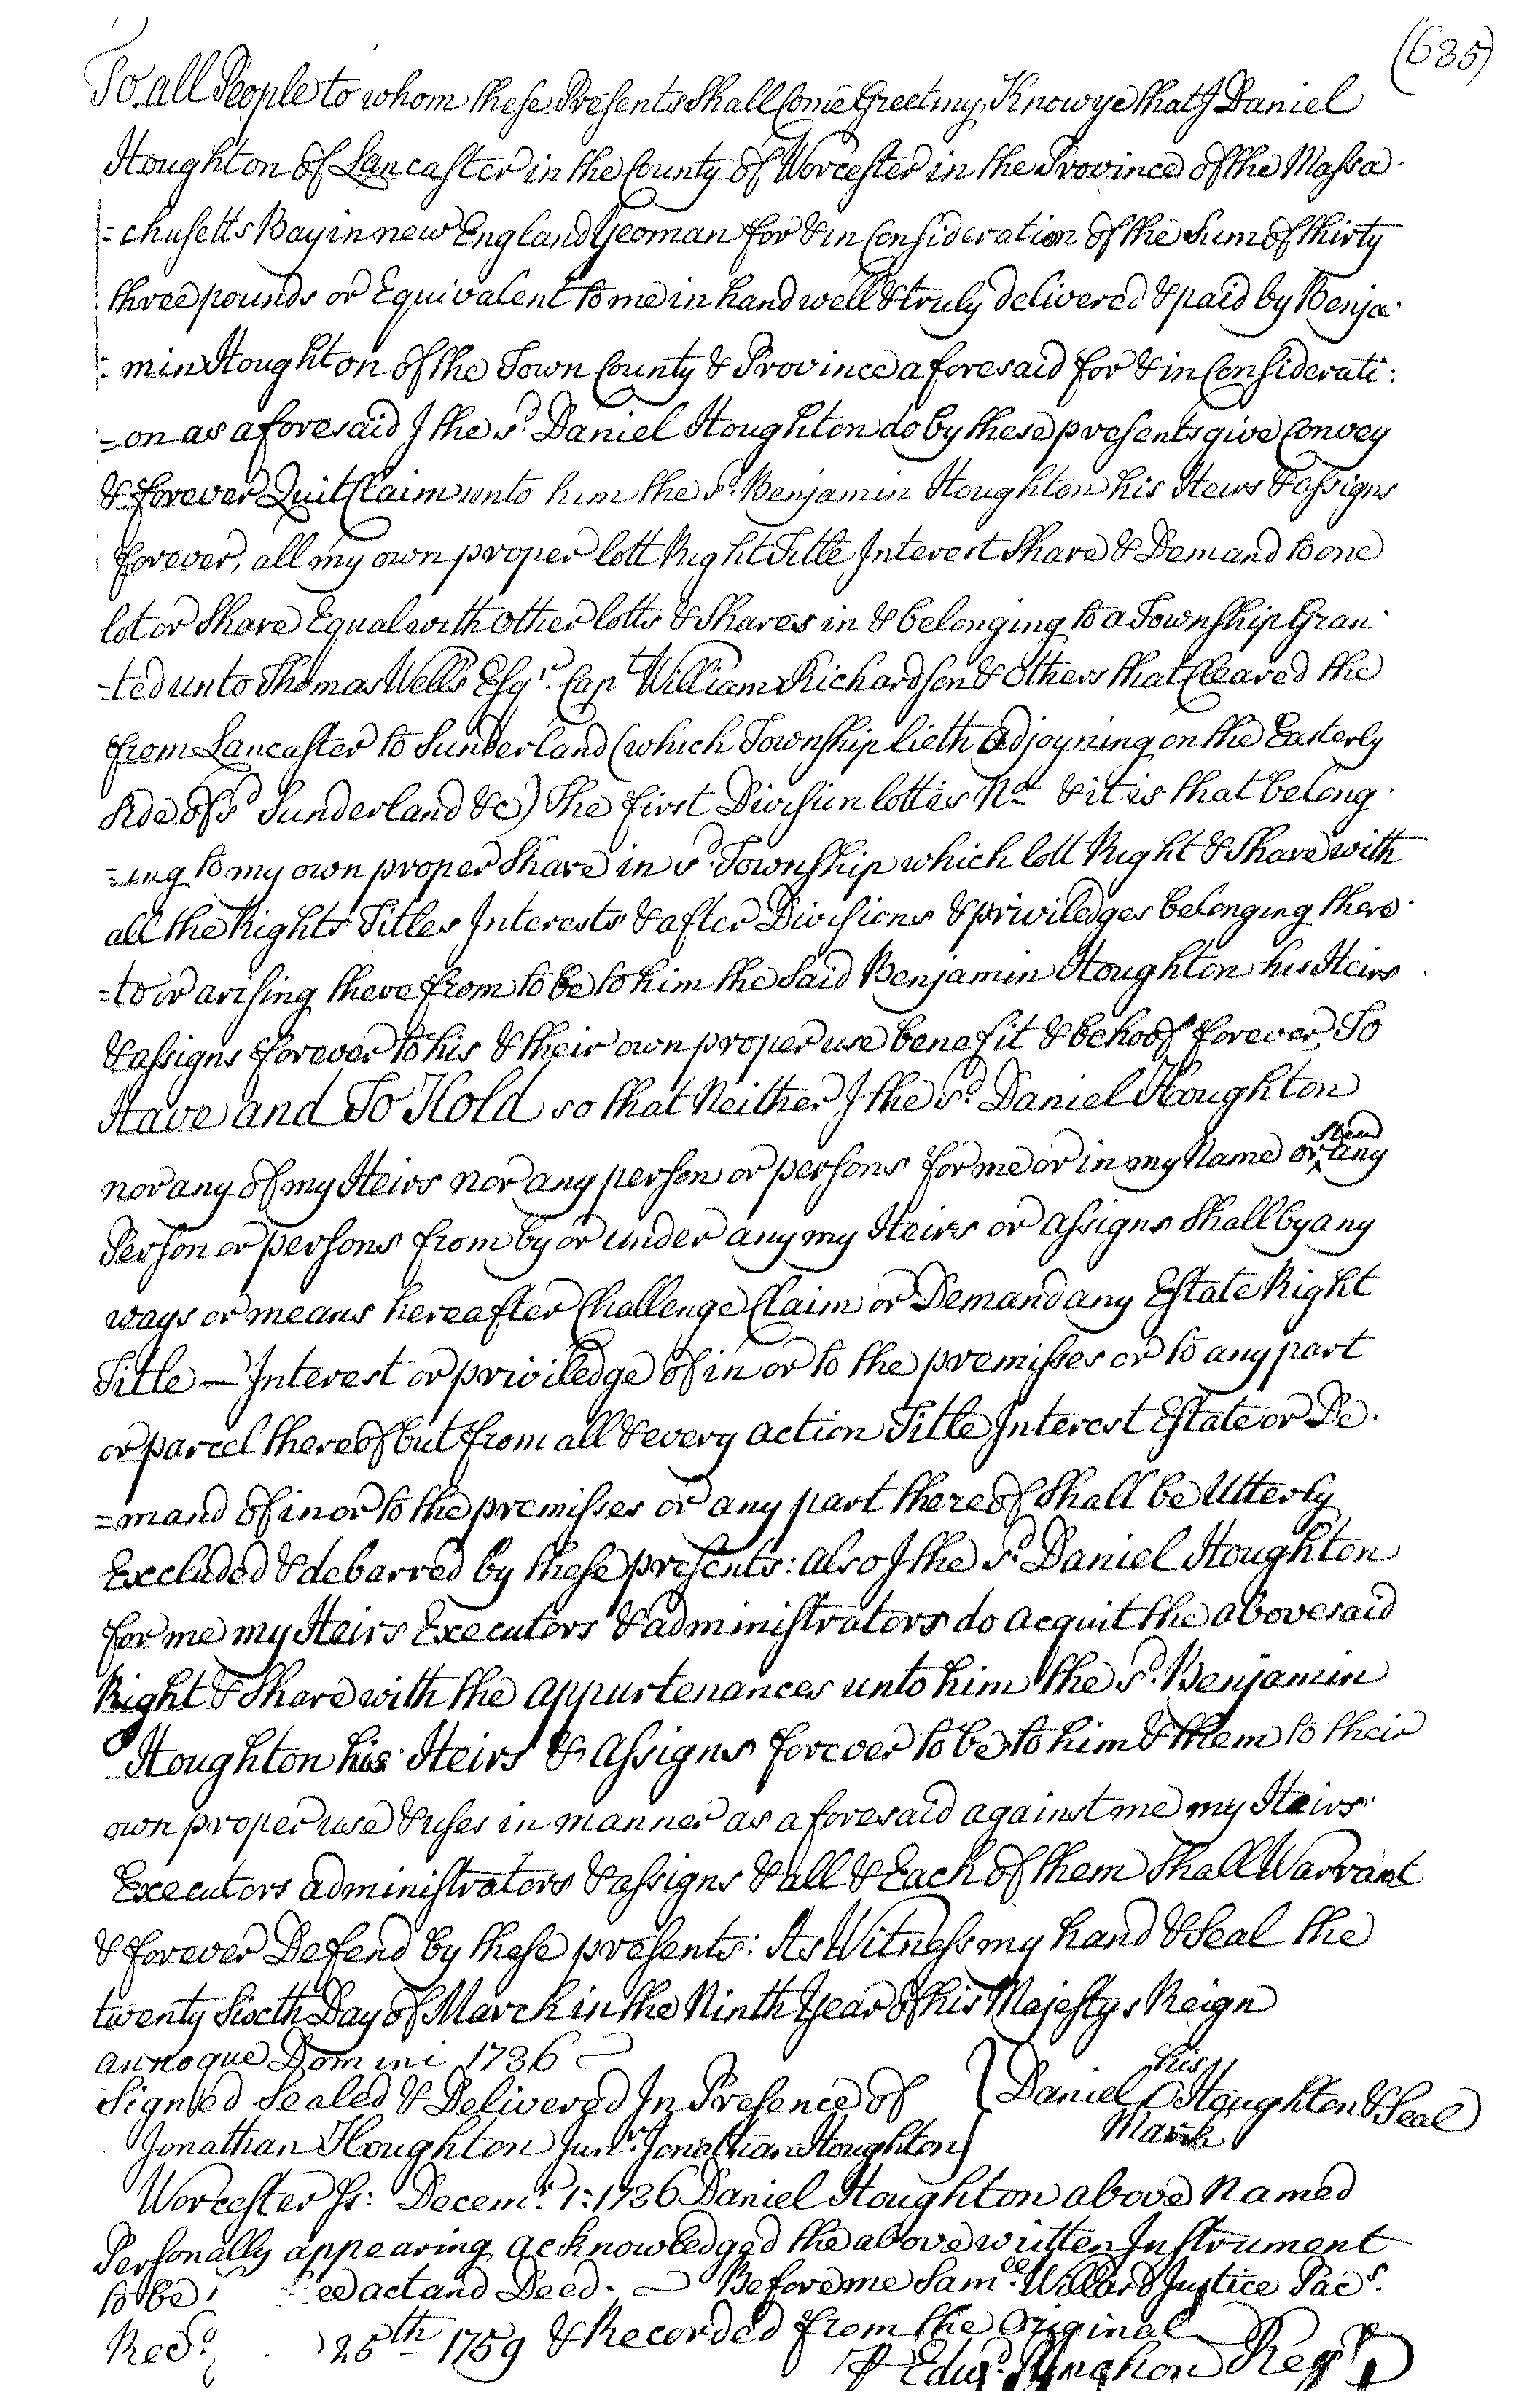 (635)
To all People to whom these Presents Shall Come Greeting, Know ye that I Daniel
Houghton of Lancaster in the County of Worcester in the Province of the Massa-
=chusetts Bay in new England Yeoman for & in Consideration of the Sum of thirty
three pounds or Equivalent to me in hand well & truly delivered & paid by Benja-
=min Houghton of the Town County & Province aforesaid for & in Considerati:
=on as aforesaid I the sd. Daniel Houghton do by these presents give Convey
& forever Quit Claim unto him the sd. Benjamin Houghton his Heirs & assigns
forever, all my own proper lott Right Title Interest Share & Demand to one
lot or Share Equal with other lotts & Shares in & belonging to a Township Gran-
=ted unto Thomas Wells Esqr. Capt William Richardson & Others that Cleared the
from Lancaster to Sunderland (which Township lieth adjoyning on the Easterly
side of sd Sunderland &c) The first Division lott is No. & it is that belong-
=ing to my own proper Share in sd. Township which lott Right & Share with
all the Rights Titles Interests & after Divisions & priviledges belonging there-
=to or arising therefrom to be to him the said Benjamin Houghton his Heirs
& assigns forever to his & their own proper use benefit & behoof forever, To
Have and To Hold so that Neither I the sd. Daniel Houghton
nor any of my Heirs nor any person or persons for me or in my Name or Stead any
Person or persons from by or under any my Heirs or assigns Shall by any
ways or means hereafter Challenge Claim or Demand any Estate Right
Title — Interest or priviledge of in or to the premisses or to any part
or parcel thereof but from all & every action Title Interest Estate or De-
=mand of in or to the premisses or any part thereof Shall be Utterly
Excluded & debarred by these presents: also I the sd. Daniel Houghton
for me my Heirs Executors & administrators do acquit the abovesaid
Right & Share with the appurtenances unto him the sd. Benjamin
Houghton his Heirs & Assigns forever to be to him & them to their
own proper use & uses in manner as aforesaid against me my Heirs
Executors administrators & assigns & all & Each of them Shall Warrant
& forever Defend by these presents: As Witness my hand & Seal the
twenty Sixth Day of March in the Ninth Year of his Majestys Reign
annoque Domini 1736
Signed Sealed & Delivered In Presence of } Daniel his Houghton & Seal
Jonathan Houghton Junr. Jonathan Houghton } Mark
Worcester Ss: Decemr. 1: 1736 Daniel Houghton above Named
Personally appearing acknowledged the above written Instrument
to be act and Deed. — Before me Saml. Willard Justice Pacs.
Recd. 25th 1759 & Recorded from the Original
Edwd. Pynchon Regr.